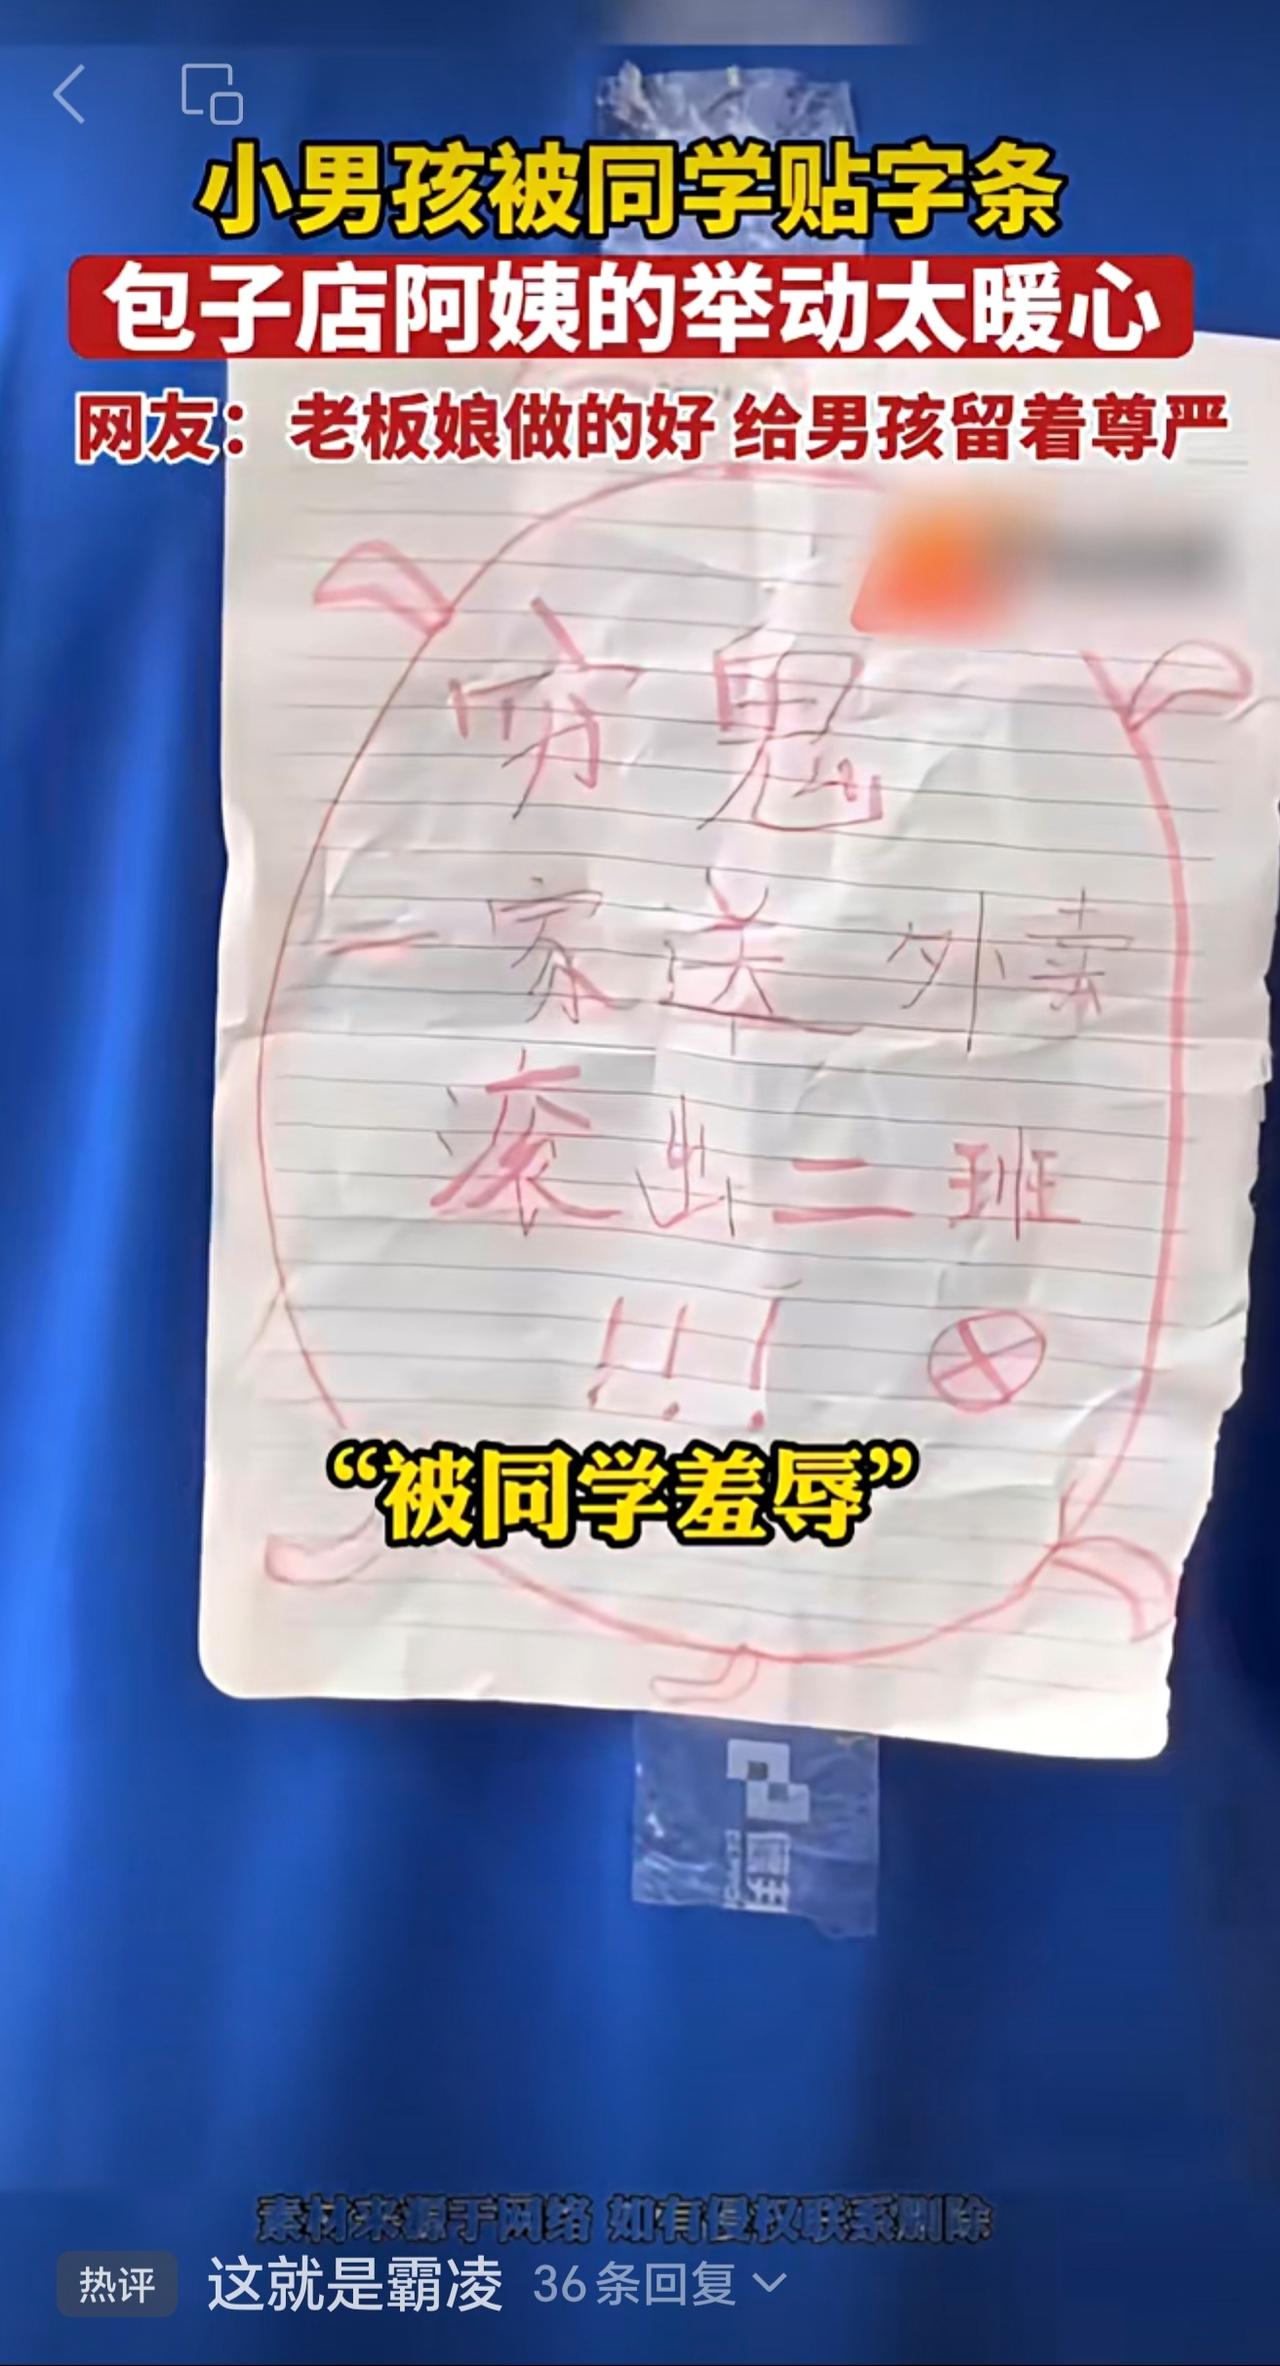 小男孩被同学贴字条
包子店阿姨的举动太暖心
网友：老板娘做的好 给男孩留着尊严
穷鬼
一家送外卖
滚出二班
!!!
“被同学羞辱”
素材来源于网络 如有侵权联系删除
热评 这就是霸凌 36条回复